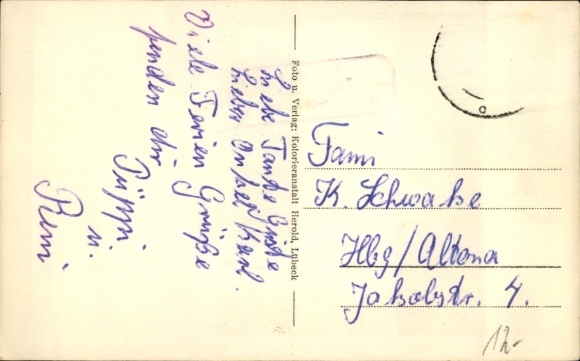 Liebe Tante
Lieber Onkel Karl.
Viele Ferien Grüße
senden dir
Püppi
u.
Foto u. Verlag: Kolorieranstalt Herold, Lübeck
Fami
K. Schwabe
Hbg/Altona
Jakobstr. 4.
12,-